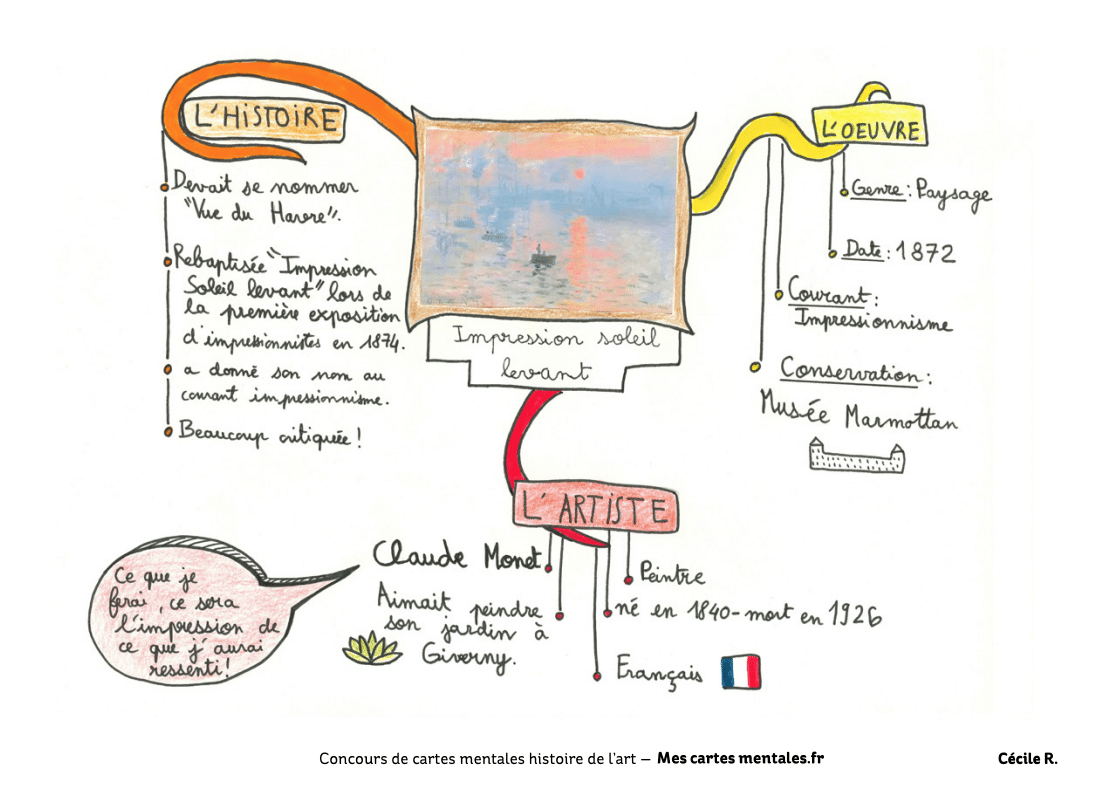 L'HISTOIRE
Devait se nommer
"Vue du Havre".
Rebaptisée "Impression
Soleil levant" lors de
la première exposition
d'impressionnistes en 1874.
a donné son nom au
courant impressionnisme.
Beaucoup critiquée !
Impression soleil
levant
L'OEUVRE
Genre : Paysage
Date : 1872
Courant :
Impressionnisme
Conservation :
Musée Marmottan
L'ARTISTE
Claude Monet
Aimait peindre
son jardin à
Giverny.
Peintre
né en 1840-mort en 1926
Français
Ce que je
ferai, ce sera
l'impression de
ce que j'aurai
ressenti !
Concours de cartes mentales histoire de l'art – Mes cartes mentales.fr
Cécile R.